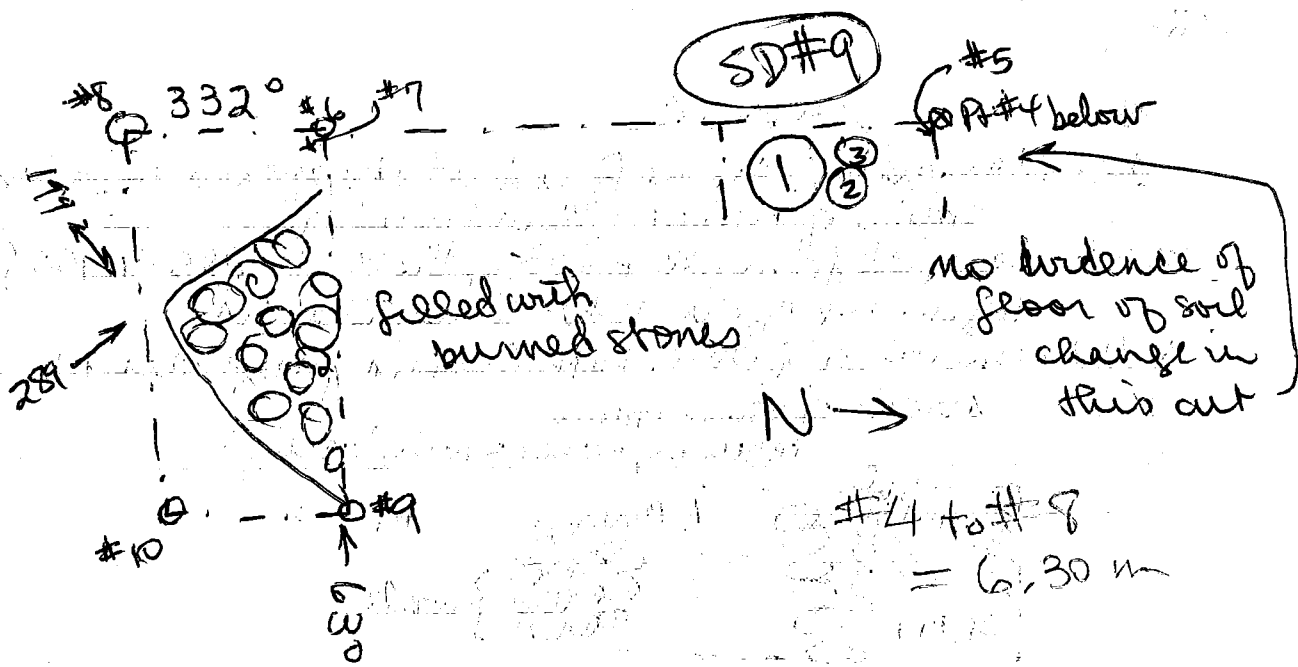 SD#9
#5
#8 332° #6 #7
Pt #4 below
1 3
2
filled with
burned stones
no evidence of
floor of soil
change in
this cut
289
N
#10
#9
#4 to #8
= 6.30 m
630